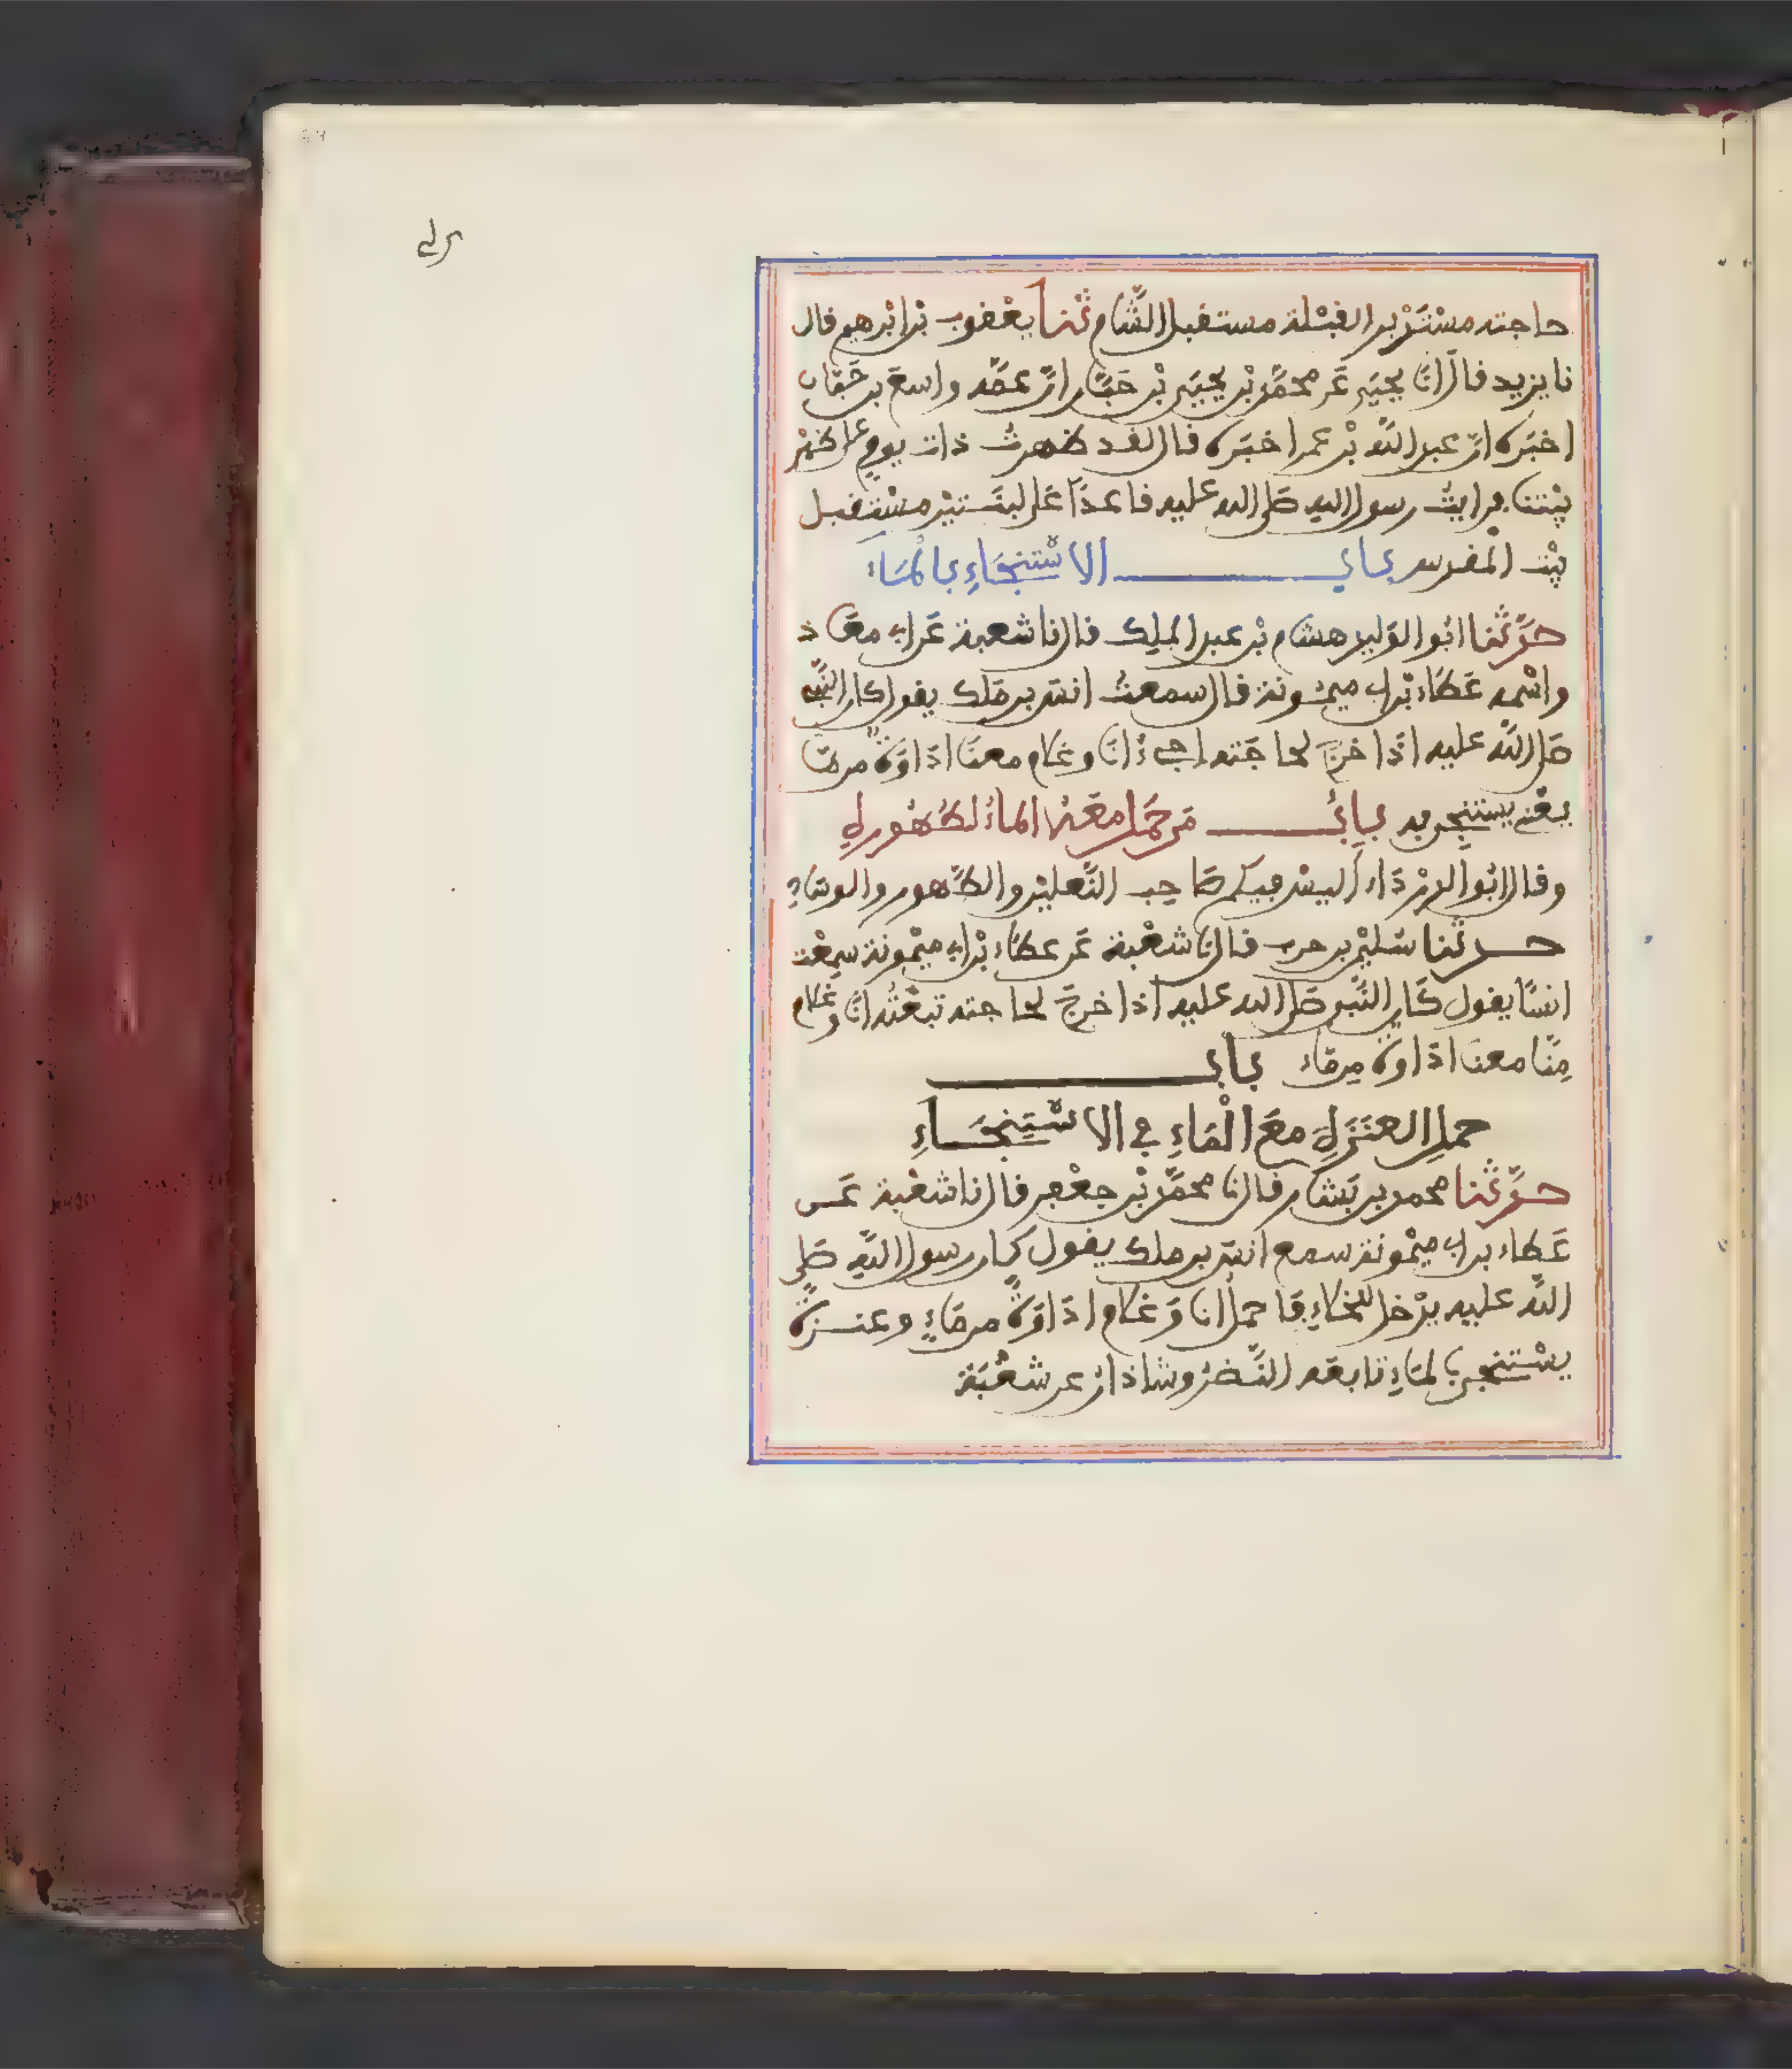 حاجته مستدبر القبلة مستقبل الشام ثنا يعقوب بن ابرهيم قال
نا يزيد قال انا يحيى عن محمد بن يحيى بن حبان ان عمه واسع بن حبان
اخبره ان عبد الله بن عمر اخبره قال لقد ظهرت ذات يوم على ظهر
بيتنا فرايت رسول الله صلى الله عليه قاعدا على لبنتين مستقبل
بيت المقدس باب الاستنجاء بالماء
حدثنا ابو الوليد هشام بن عبد الملك قال نا شعبة عن ابي معاذ
واسمه عطاء بن ابي ميمونة قال سمعت انس بن ملك يقول كان النبي
صلى الله عليه اذا خرج لحاجته اجيء انا وغلام معنا اداوة من ما
يعني يستنجي به باب من حمل معه الماء لطهوره
وقال ابو الدرداء اليس فيكم صاحب النعلين والطهور والوساد
حدثنا سليمن بن حرب قال نا شعبة عن عطاء بن ابي ميمونة سمعت
انسا يقول كان النبي صلى الله عليه اذا خرج لحاجته تبعته انا وغلام
منا معنا اداوة من ماء باب
حمل العنزة مع الماء في الاستنجاء
حدثنا محمد بن بشار قال نا محمد بن جعفر قال نا شعبة عن
عطاء بن ابي ميمونة سمع انس بن ملك يقول كان رسول الله صلى
الله عليه يدخل الخلاء فاحمل انا وغلام اداوة من ماء وعنزة
يستنجي بالماء تابعه النضر وشاذان عن شعبة